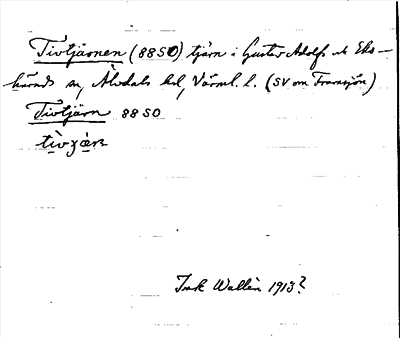 Tivtjärnen (88SO) tjärn i Gustav Adolfs ok Eks-
härads sn, Älvdals hd, Värml. l. (SV om Transjön)
Tivtjärn 88 SO
tìvʒæ̀ɳ
Insk Wallén 1913?